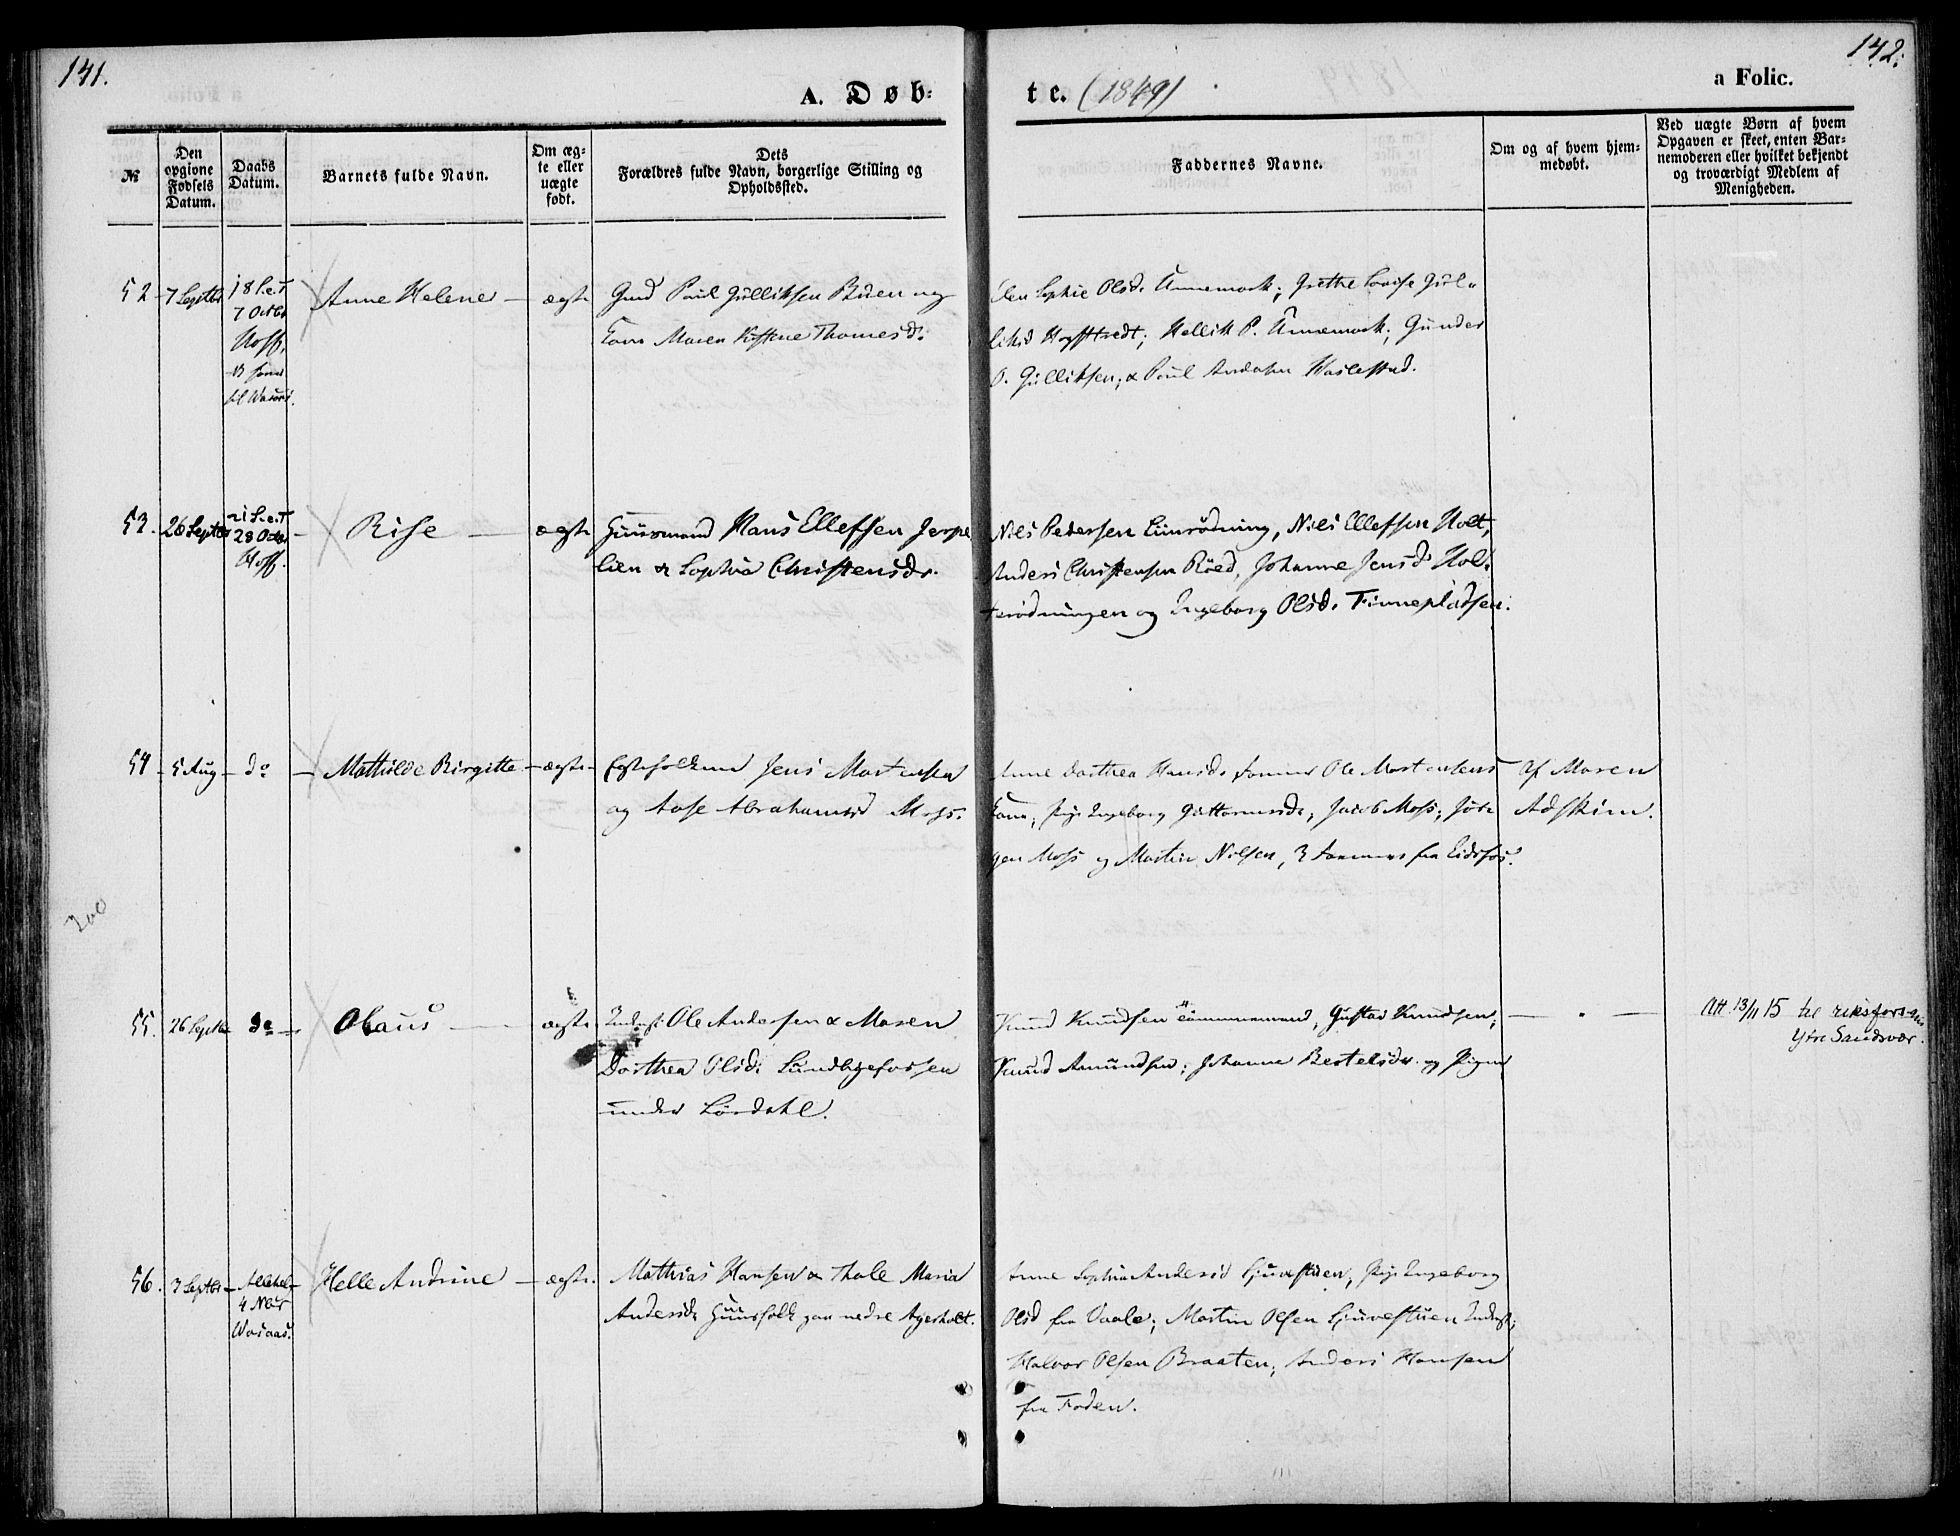 141.
142.
A. Døb=
te. (1849)
a Folio.
№
Den
opgivne
Fødsels
Datum.
Daabs
Datum.
Barnets fulde Navn.
Om æg-
te eller
uægte
født.
Dets
Forældres fulde Navn, borgerlige Stilling og
Opholdssted.
Faddernes Navne.
Om og af hvem hjem-
medøbt.
Ved uægte Børn af hvem
Opgaven er skeet, enten Bar-
nemoderen eller hvilket bekjendt
og troværdigt Medlem af
Menigheden.
52
7 Septbr
18 S. e. T
7 Octbr
Hoff,
Anne Helene
ægte
Gmd Poul Gulliksen Buen og
Kone Maren Thomesd.
Sophie Olsd. Unnemark; Grethe Lovise Gul-
Hellik P. Unnemark; Gunder
O. Gulliksen; & Poul Haslestad.
53.
26 Septbr
21 S. e. T
28 Octbr
Hoff.
Rise
ægte
Huusmand Hans Ellefsen Jerpe
lien & Sophia Christensdr.
Niels Pedersen Niels Ellefsen Holt,
Anders Christensen Röed, Johanne Jensd Hol-
terödningen og Ingeborg Olsd. Finnepladsen.
54
5 Aug
do
Mathilde Birgitte
ægte
Egtefolkene Jens Mortensen
og Aase Abrahamsd Moss.
Anne Dorthea Hansd. Ole Mortensens
Kone, Pige Ingeborg Guttormsd.; Jacob Moss; Jör-
gen Moss og Martin Nilsen, fra Eidsfos.
Af Maren
Adskim.
200
55.
26 Septbr
do
Olaus
ægte
Inderst Ole Andersen & Maren
Dorthea Olsd. Lundbyefossen
under Lördahl.
Knud Knudsen Gustav Knudsen;
Knud Amundsen; Johanne Bertelsdr. og Pigen
Att 13/11 15 til riksfors. ans
Ytre Sandsvær.
56.
3 Septbr
Allehel-
4 Nbr
Wasaas.
Helle Andrine
ægte.
Mathias Hansen & Thale Maria
Andersdr. Huusfolk paa nedre Agerholt.
Anne Sophia Andersd Ljuvestuen, Pige Ingeborg
Olsd fra Vaale; Martin Olsen Ljuvestuen Inderst;
Halvor Olsen Braaten; Anders Hansen
fra Foden.